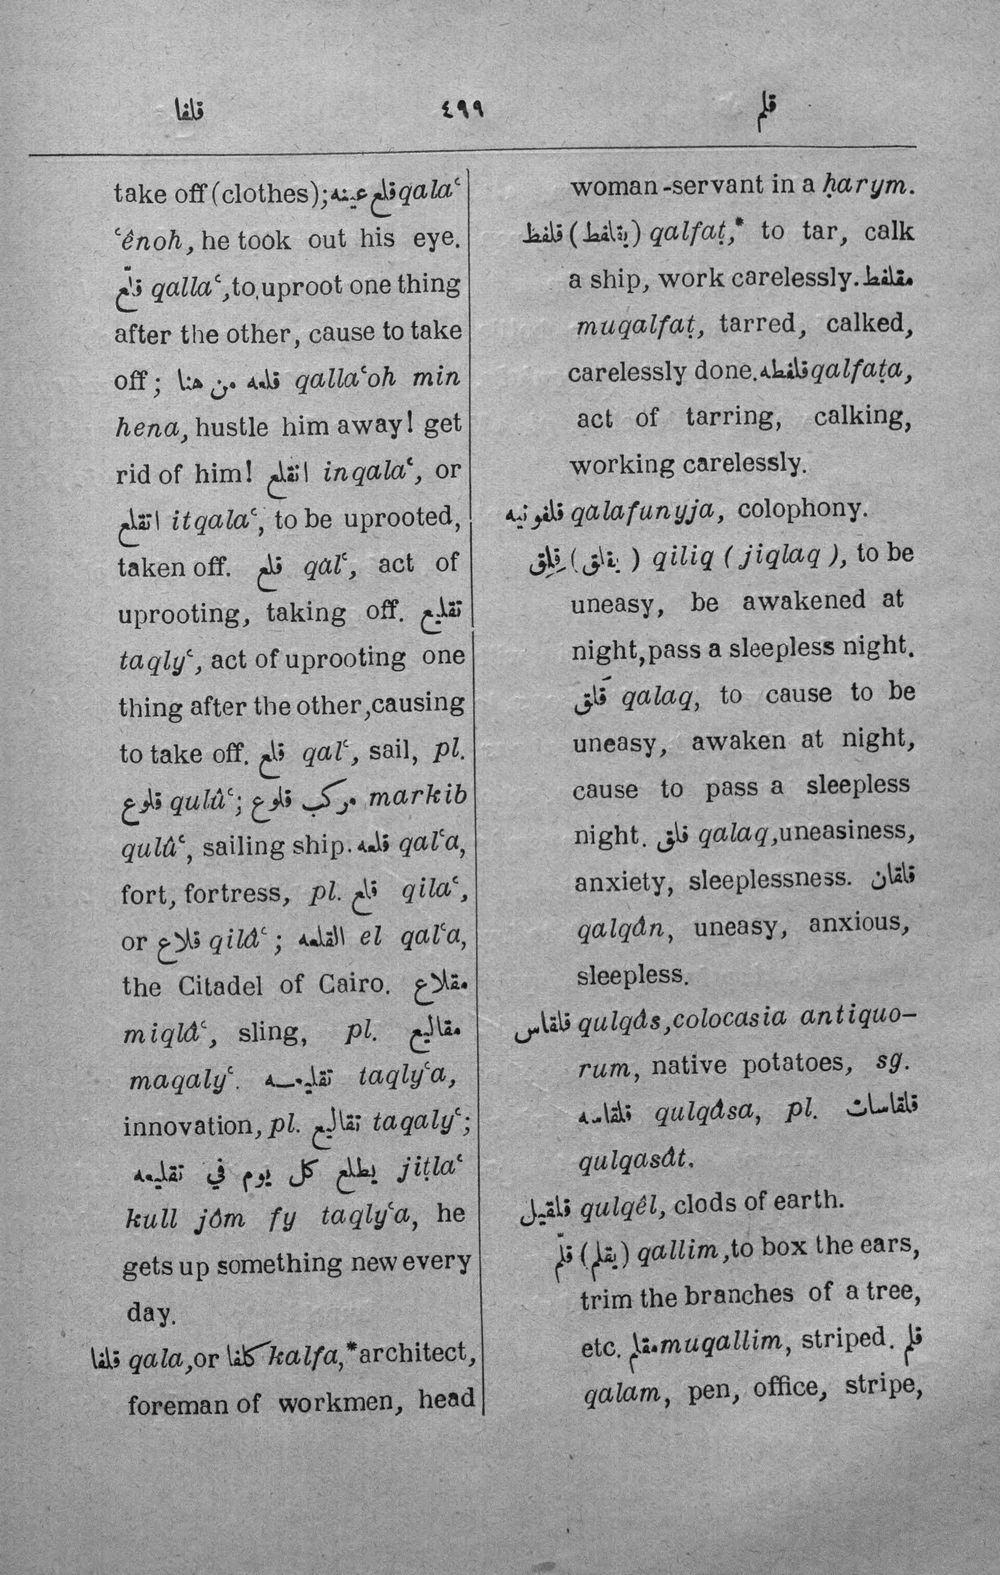 قلفا ٤٩٩ قلم
take off (clothes); قلع عينه qalaʿ
ʿênoh, he took out his eye.
قلّع qallaʿ, to uproot one thing
after the other, cause to take
off; قلعه من هنا qallaʿoh min
hena, hustle him away! get
rid of him! انقلع inqalaʿ, or
اتقلع itqalaʿ, to be uprooted,
taken off. قلع qalʿ, act of
uprooting, taking off. تقليع
taqlyʿ, act of uprooting one
thing after the other, causing
to take off. قلع qalʿ, sail, pl.
قلوع qulûʿ; مركب قلوع markib
qulûʿ, sailing ship. قلعه qalʿa,
fort, fortress, pl. قلع qilaʿ,
or قلاع qilâʿ; القلعه el qalʿa,
the Citadel of Cairo. مقلاع
miqlâʿ, sling, pl. مقاليع
maqalyʿ. تقليعه taqlyʿa,
innovation, pl. تقاليع taqalyʿ;
يطلع كل يوم في تقليعه jiṭlaʿ
kull jôm fy taqlyʿa, he
gets up something new every
day.
قلفا qala, or كلفا kalfa,* architect,
foreman of workmen, head
woman-servant in a ḥarym.
قلفظ (يقلفط) qalfaṭ,* to tar, calk
a ship, work carelessly. مقلفط
muqalfaṭ, tarred, calked,
carelessly done. قلفطه qalfaṭa,
act of tarring, calking,
working carelessly.
قلفونيه qalafunyja, colophony.
قِلِق (يقلق) qiliq (jiqlaq), to be
uneasy, be awakened at
night, pass a sleepless night.
قَلق qalaq, to cause to be
uneasy, awaken at night,
cause to pass a sleepless
night. قلق qalaq, uneasiness,
anxiety, sleeplessness. قلقان
qalqân, uneasy, anxious,
sleepless.
قلقاس qulqâs, colocasia antiquo-
rum, native potatoes, sg.
قلقاسه qulqâsa, pl. قلقاسات
qulqasât.
قلقيل qulqêl, clods of earth.
قلّم (يقلم) qallim, to box the ears,
trim the branches of a tree,
etc. مقلم muqallim, striped. قلم
qalam, pen, office, stripe,